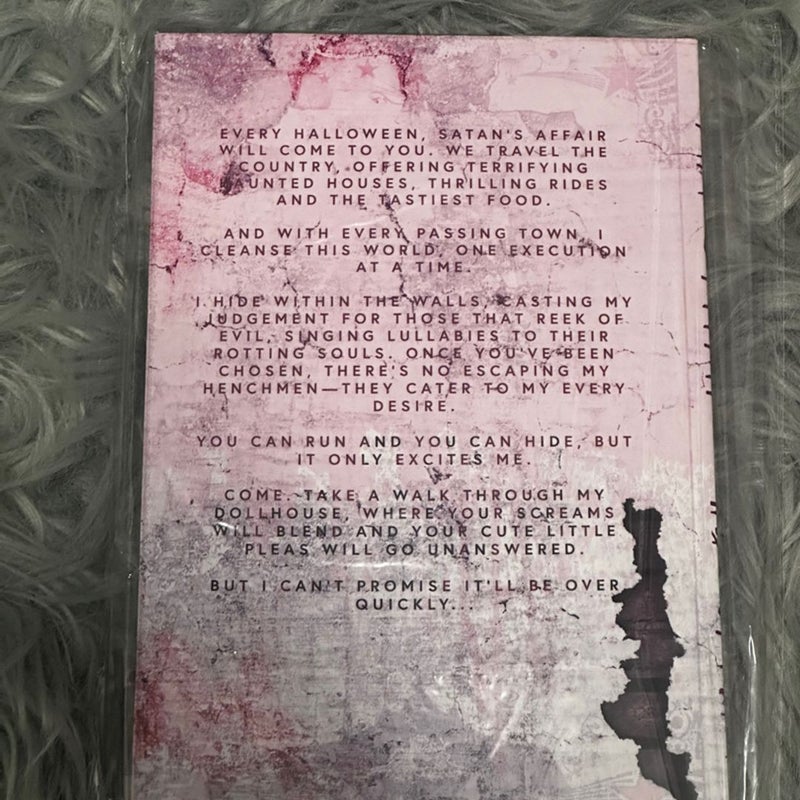 EVERY HALLOWEEN, SATAN'S AFFAIR
WILL COME TO YOU. WE TRAVEL THE
COUNTRY, OFFERING TERRIFYING
HAUNTED HOUSES, THRILLING RIDES
AND THE TASTIEST FOOD.
AND WITH EVERY PASSING TOWN, I
CLEANSE THIS WORLD, ONE EXECUTION
AT A TIME.
I HIDE WITHIN THE WALLS, CASTING MY
JUDGEMENT FOR THOSE THAT REEK OF
EVIL, SINGING LULLABIES TO THEIR
ROTTING SOULS. ONCE YOU'VE BEEN
CHOSEN, THERE'S NO ESCAPING MY
HENCHMEN—THEY CATER TO MY EVERY
DESIRE.
YOU CAN RUN AND YOU CAN HIDE, BUT
IT ONLY EXCITES ME.
COME. TAKE A WALK THROUGH MY
DOLLHOUSE, WHERE YOUR SCREAMS
WILL BLEND AND YOUR CUTE LITTLE
PLEAS WILL GO UNANSWERED.
BUT I CAN'T PROMISE IT'LL BE OVER
QUICKLY...